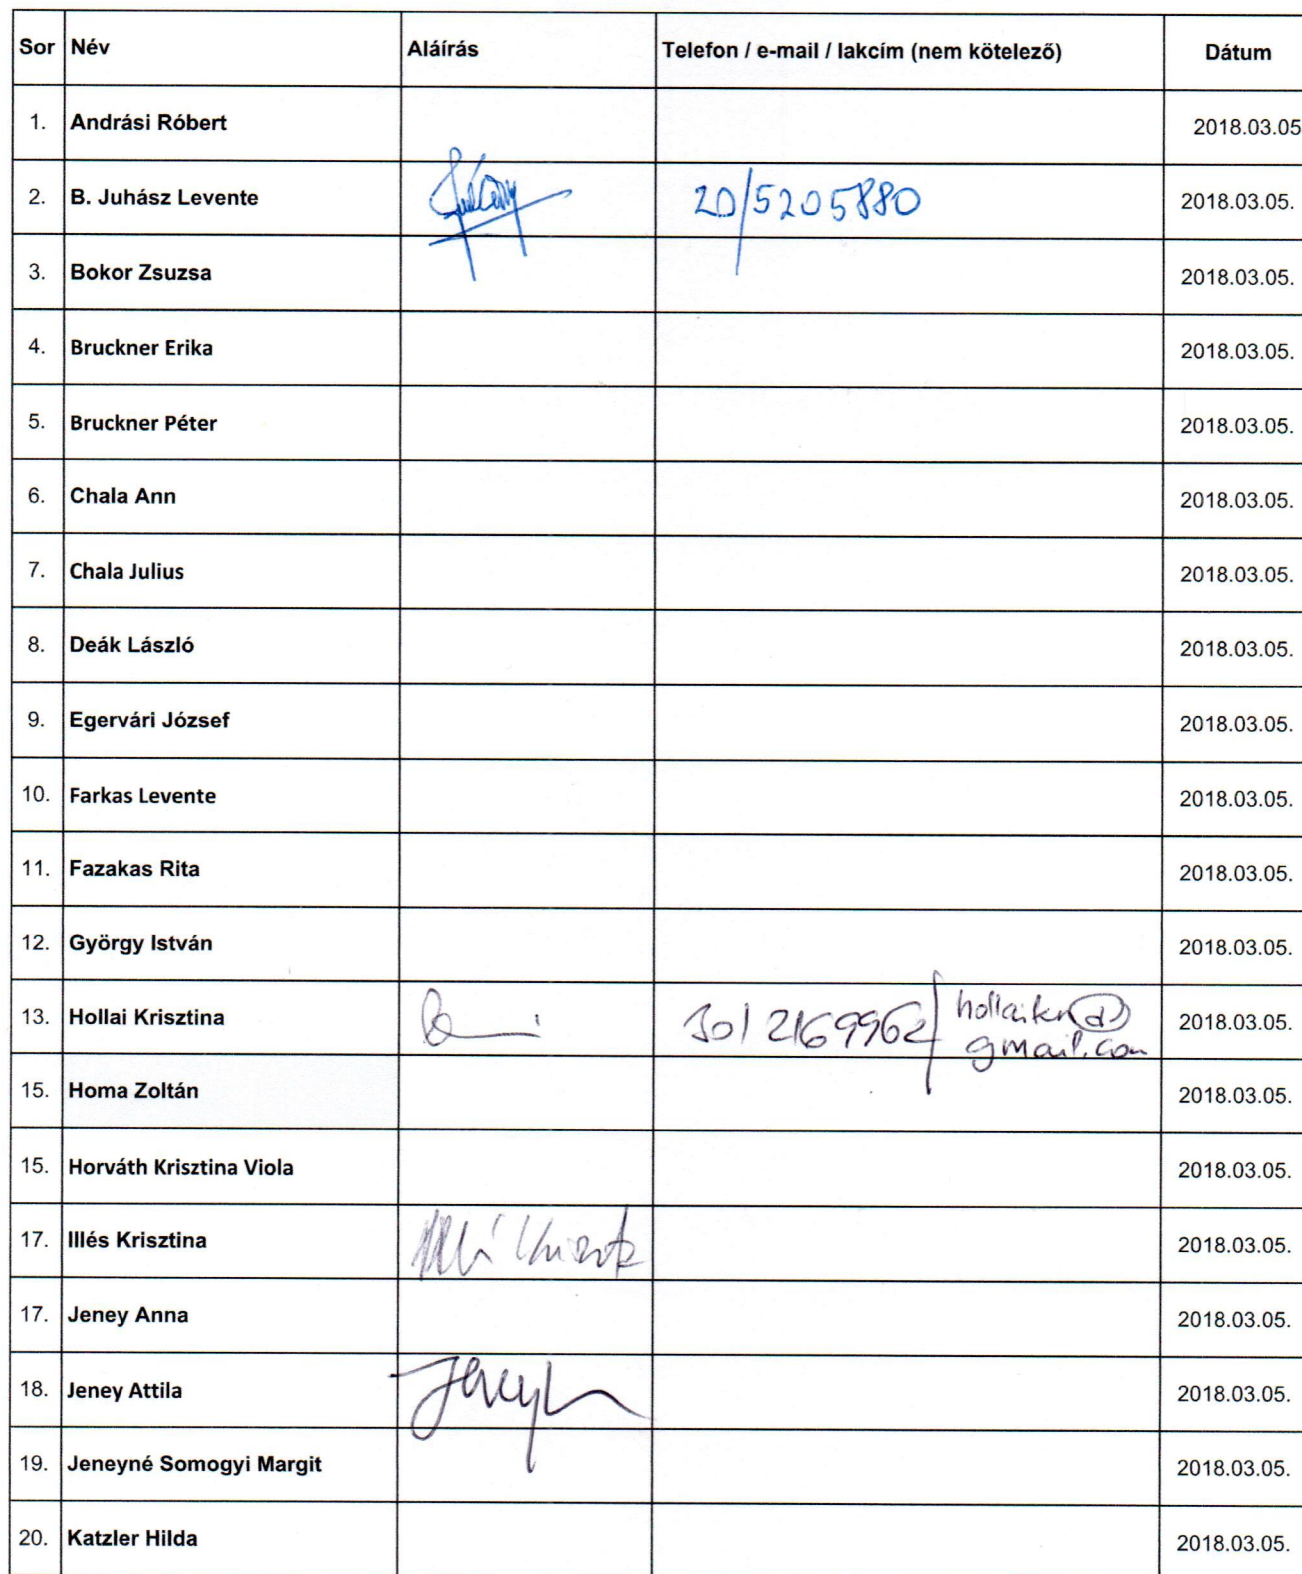 Sor Név Aláírás Telefon / e-mail / lakcím (nem kötelező) Dátum
1. Andrási Róbert 2018.03.05
2. B. Juhász Levente 20/5205880 2018.03.05.
3. Bokor Zsuzsa 2018.03.05.
4. Bruckner Erika 2018.03.05.
5. Bruckner Péter 2018.03.05.
6. Chala Ann 2018.03.05.
7. Chala Julius 2018.03.05.
8. Deák László 2018.03.05.
9. Egervári József 2018.03.05.
10. Farkas Levente 2018.03.05.
11. Fazakas Rita 2018.03.05.
12. György István 2018.03.05.
13. Hollai Krisztina 30/2169962/ hollaikr@ 2018.03.05.
gmail.com
15. Homa Zoltán 2018.03.05.
15. Horváth Krisztina Viola 2018.03.05.
17. Illés Krisztina 2018.03.05.
17. Jeney Anna 2018.03.05.
18. Jeney Attila 2018.03.05.
19. Jeneyné Somogyi Margit 2018.03.05.
20. Katzler Hilda 2018.03.05.